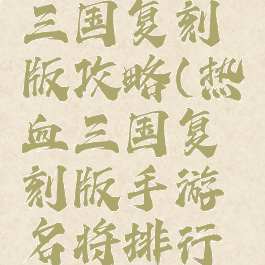 三国复刻
版攻略(热
血三国复
刻版手游
名将排行